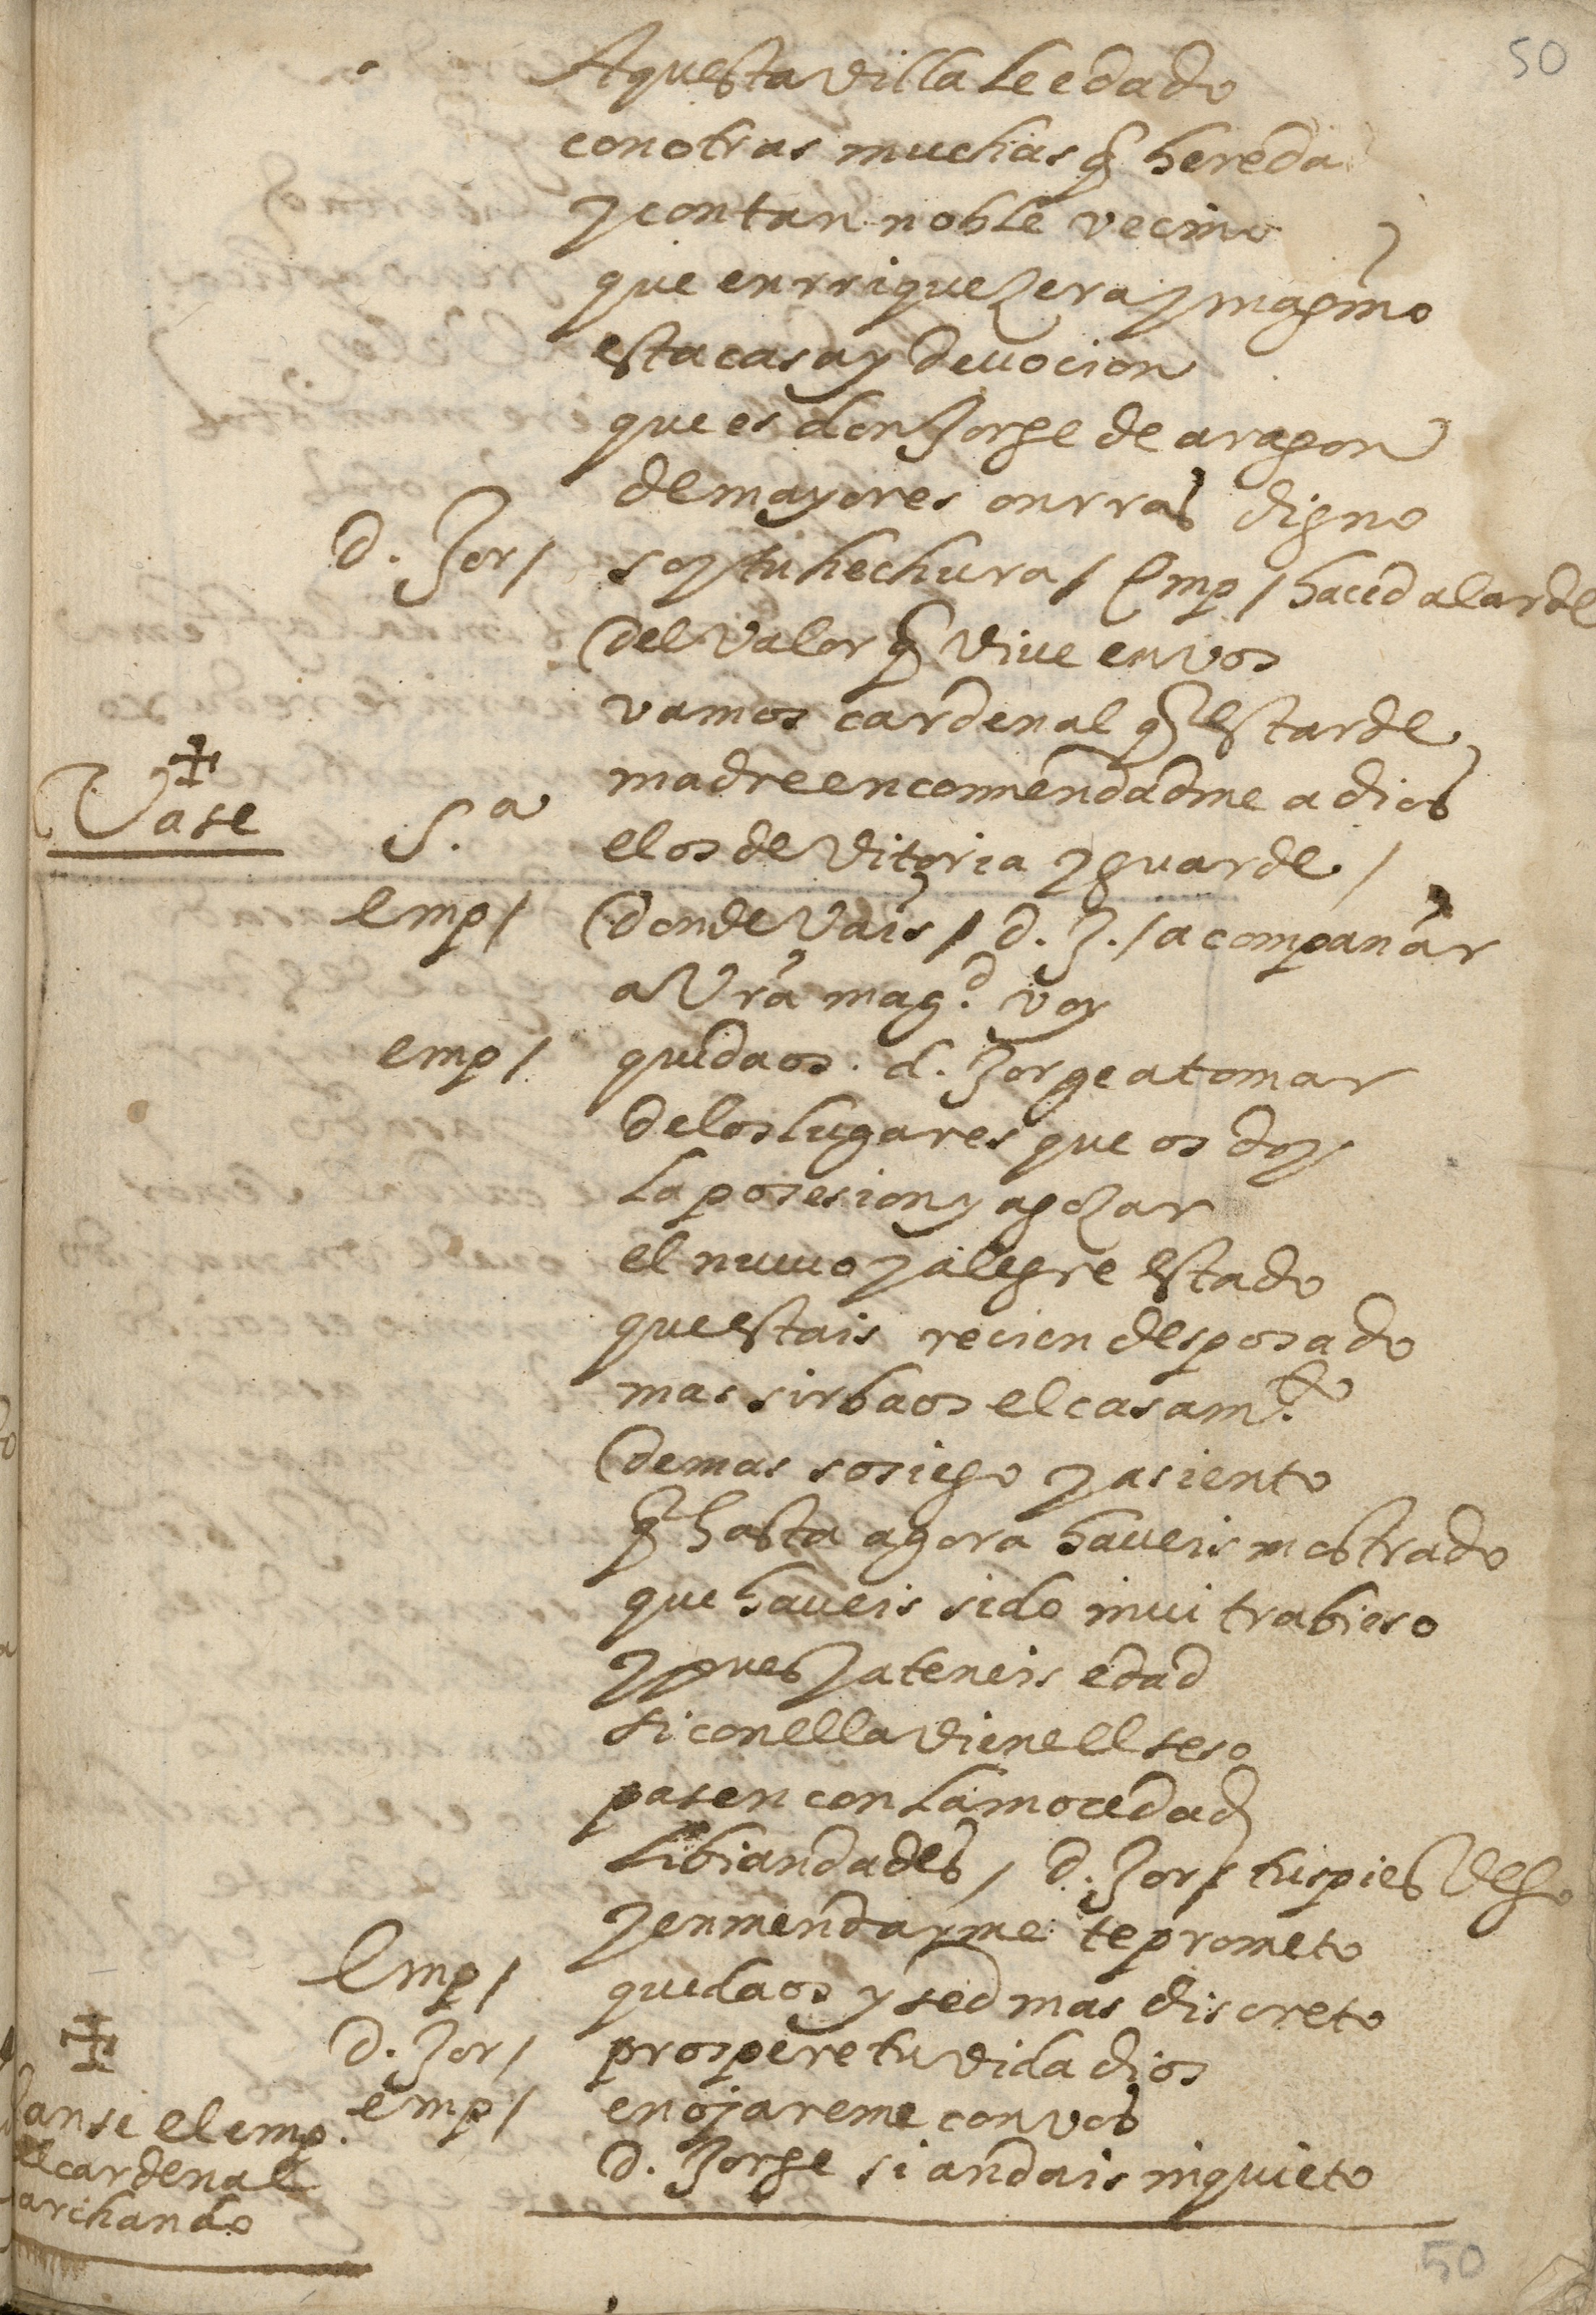 50
Aquesta villa le e dado
con otras muchas q̃ hereda
y con tan noble vecino
que enrriquezera ymagino
esta casa y deuocion
que es don Jorge de aragon
de mayores onrras digno
d. Jor / soy tu hechura / Emp / haced alarde
del valor q̃ viue en vos
vamos cardenal q̃ es tarde
madre encomendadme a dios
Vase
S.a el os de vitoria y guarde /
emp / donde vais / d. J. / a compañar
a Vrã mag.d voy
emp / quedaos . d. Jorge a tomar
de los lugares que os doy
la posesion y a gozar
el nuuo y alegre estado
que estais recien desposado
mas sirbaos el casam.to
de mas sosiego y asiento
q̃ hasta agora haueis mostrado
que haueis sido mui trabieso
y pues ya teneis edad
si con ella viene el seso
pasen con la mocedad
libiandades / d. Jor / tus pies veso
y enmendarme te prometo
Emp / quedaos y sed mas discreto
d. Jor / prospere tu vida dios
emp / enojareme con vos
d. Jorge si andais inquieto
Vanse el emp.
el cardenal
marchando
50